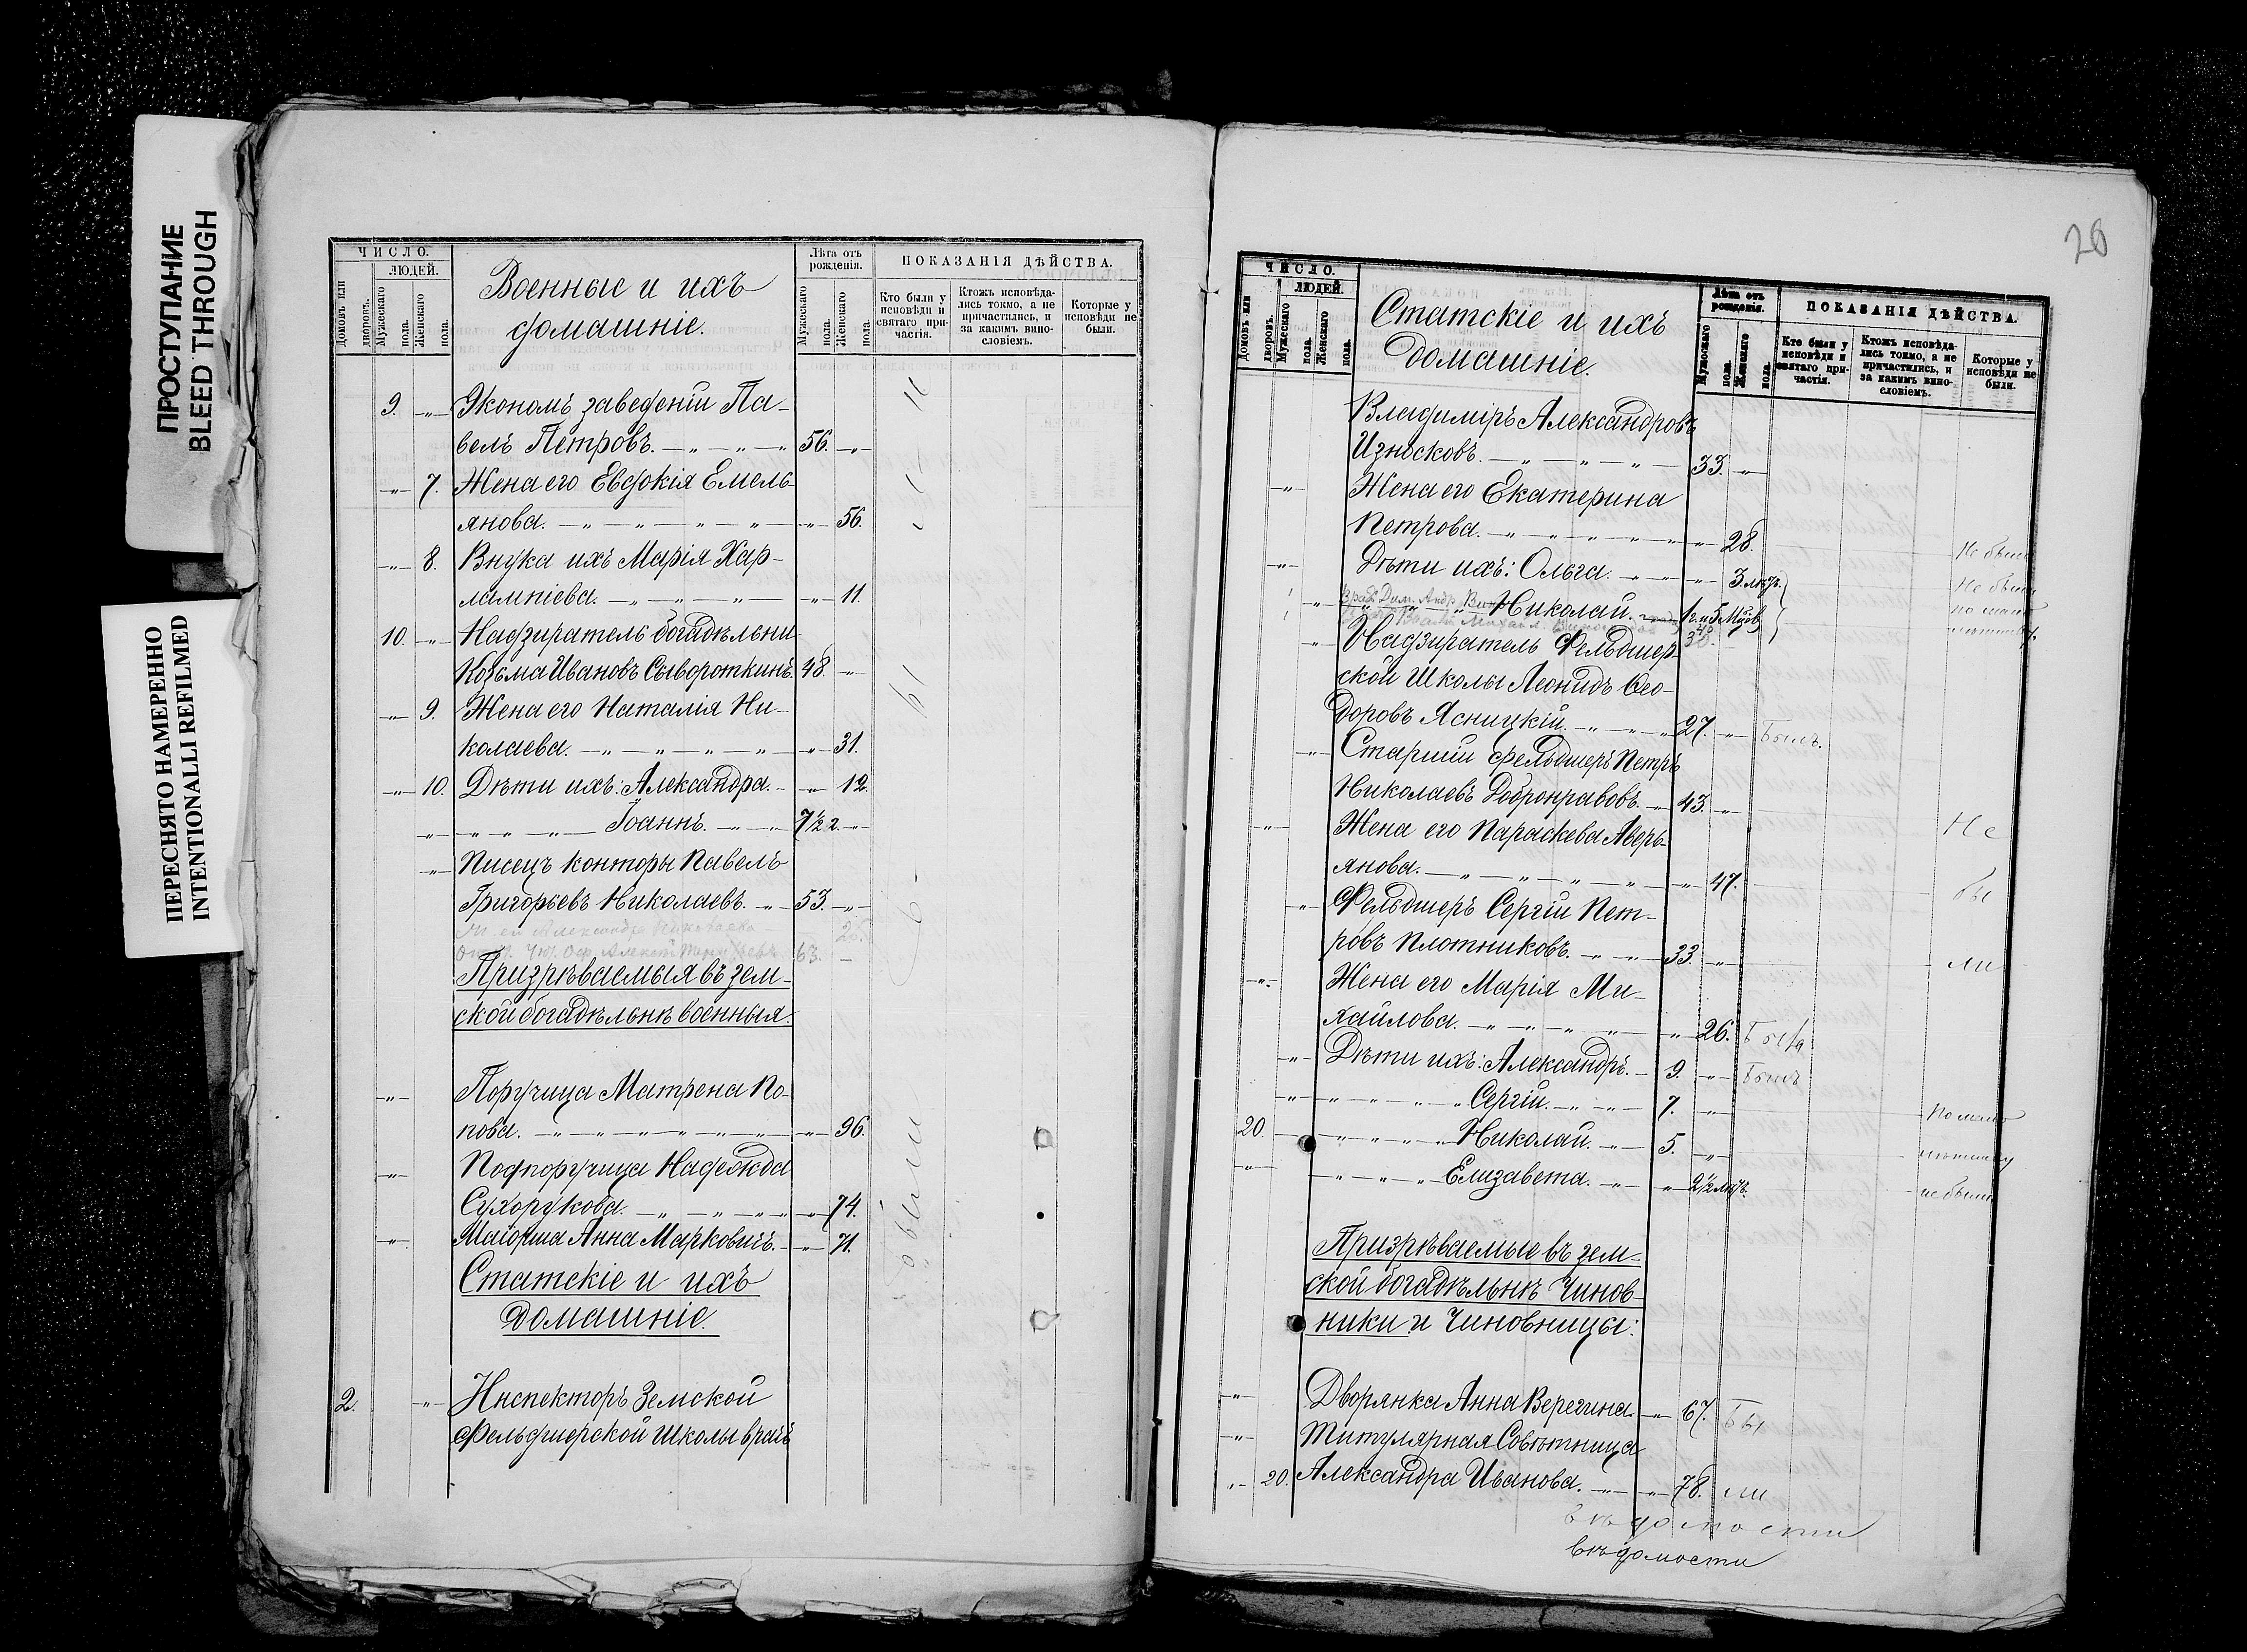 ПРОСТУПАНИЕ
BLEED THROUGH
ПЕРЕСНЯТО НАМЕРЕННО
INTENTIONALLI REFILMED
ЧИСЛО.
ЛЮДЕЙ.
Домовъ или дворовъ.
Мужескаго пола.
Женскаго пола.
Военные и ихъ
домашніе.
Лѣта отъ рожденія.
Мужескаго пола.
Женскаго пола.
ПОКАЗАНІЯ ДѢЙСТВА.
Кто были у исповѣди и святаго причастія.
Ктожъ исповѣдались токмо, а не причастились, и за какимъ винословіемъ.
Которые у исповѣди не были.
9. Экономъ заведеній Па-
велъ Петровъ. 56.
7. Жена его Евдокія Емель-
янова. 56.
8. Внука ихъ Марія Хар-
лампіева. 11.
10. Надзиратель богадѣльни
Козьма Ивановъ Сывороткинъ. 48.
9. Жена его Наталія Ни-
колаева. 31.
10. Дѣти ихъ: Александра. 12.
Іоаннъ. 7½ г.
Писецъ конторы Павелъ
Григорьевъ Николаевъ. 53.
63.
Призрѣваемыя въ зем-
ской богадѣльнѣ военныя.
Поручица Матрена По-
пова. 96.
Подпоручица Надежда
Сухорукова. 74.
Маіорша Анна Марковичъ. 71.
были
Статскіе и ихъ
домашніе.
2. Инспекторъ Земской
Фельдшерской Школы врачъ
20
ЧИСЛО.
ЛЮДЕЙ.
Домовъ или дворовъ.
Мужескаго пола.
Женскаго пола.
Статскіе и ихъ
домашніе.
Лѣта отъ рожденія.
Мужескаго пола.
Женскаго пола.
ПОКАЗАНІЯ ДѢЙСТВА.
Кто были у исповѣди и святаго причастія.
Ктожъ исповѣдались токмо, а не причастились, и за какимъ винословіемъ.
Которые у исповѣди не были.
Владиміръ Александровъ
Износковъ. 33.
Жена его Екатерина
Петрова. 28. Не были
Дѣти ихъ: Ольга. 3 лѣтъ. Не были
Николай. 1 г. и 5 мѣс. по мало
лѣтству
Надзиратель Фельдшер-
ской Школы Леонидъ Ѳео-
доровъ Ясницкій. 27. Былъ.
Старшій фельдшеръ Петръ
Николаевъ Добронравовъ. 43.
Не
Жена его Параскева Аверь-
янова. 47.
бы
Фельдшеръ Сергій Пет-
ровъ Плотниковъ. 33.
ли
Жена его Марія Ми-
хайлова. 26. Была
Дѣти ихъ: Александръ. 9. Былъ
Сергій. 7. По мало
20. Николай. 5. лѣтству
Елизавета. 2½ лѣтъ. не были
Призрѣваемые въ зем-
ской богадѣльнѣ Чинов-
ники и Чиновницы:
Дворянка Анна Верегина. 67. Бы
Титулярная Совѣтница
20. Александра Иванова. 78. ли
вѣдомости
вѣдомости